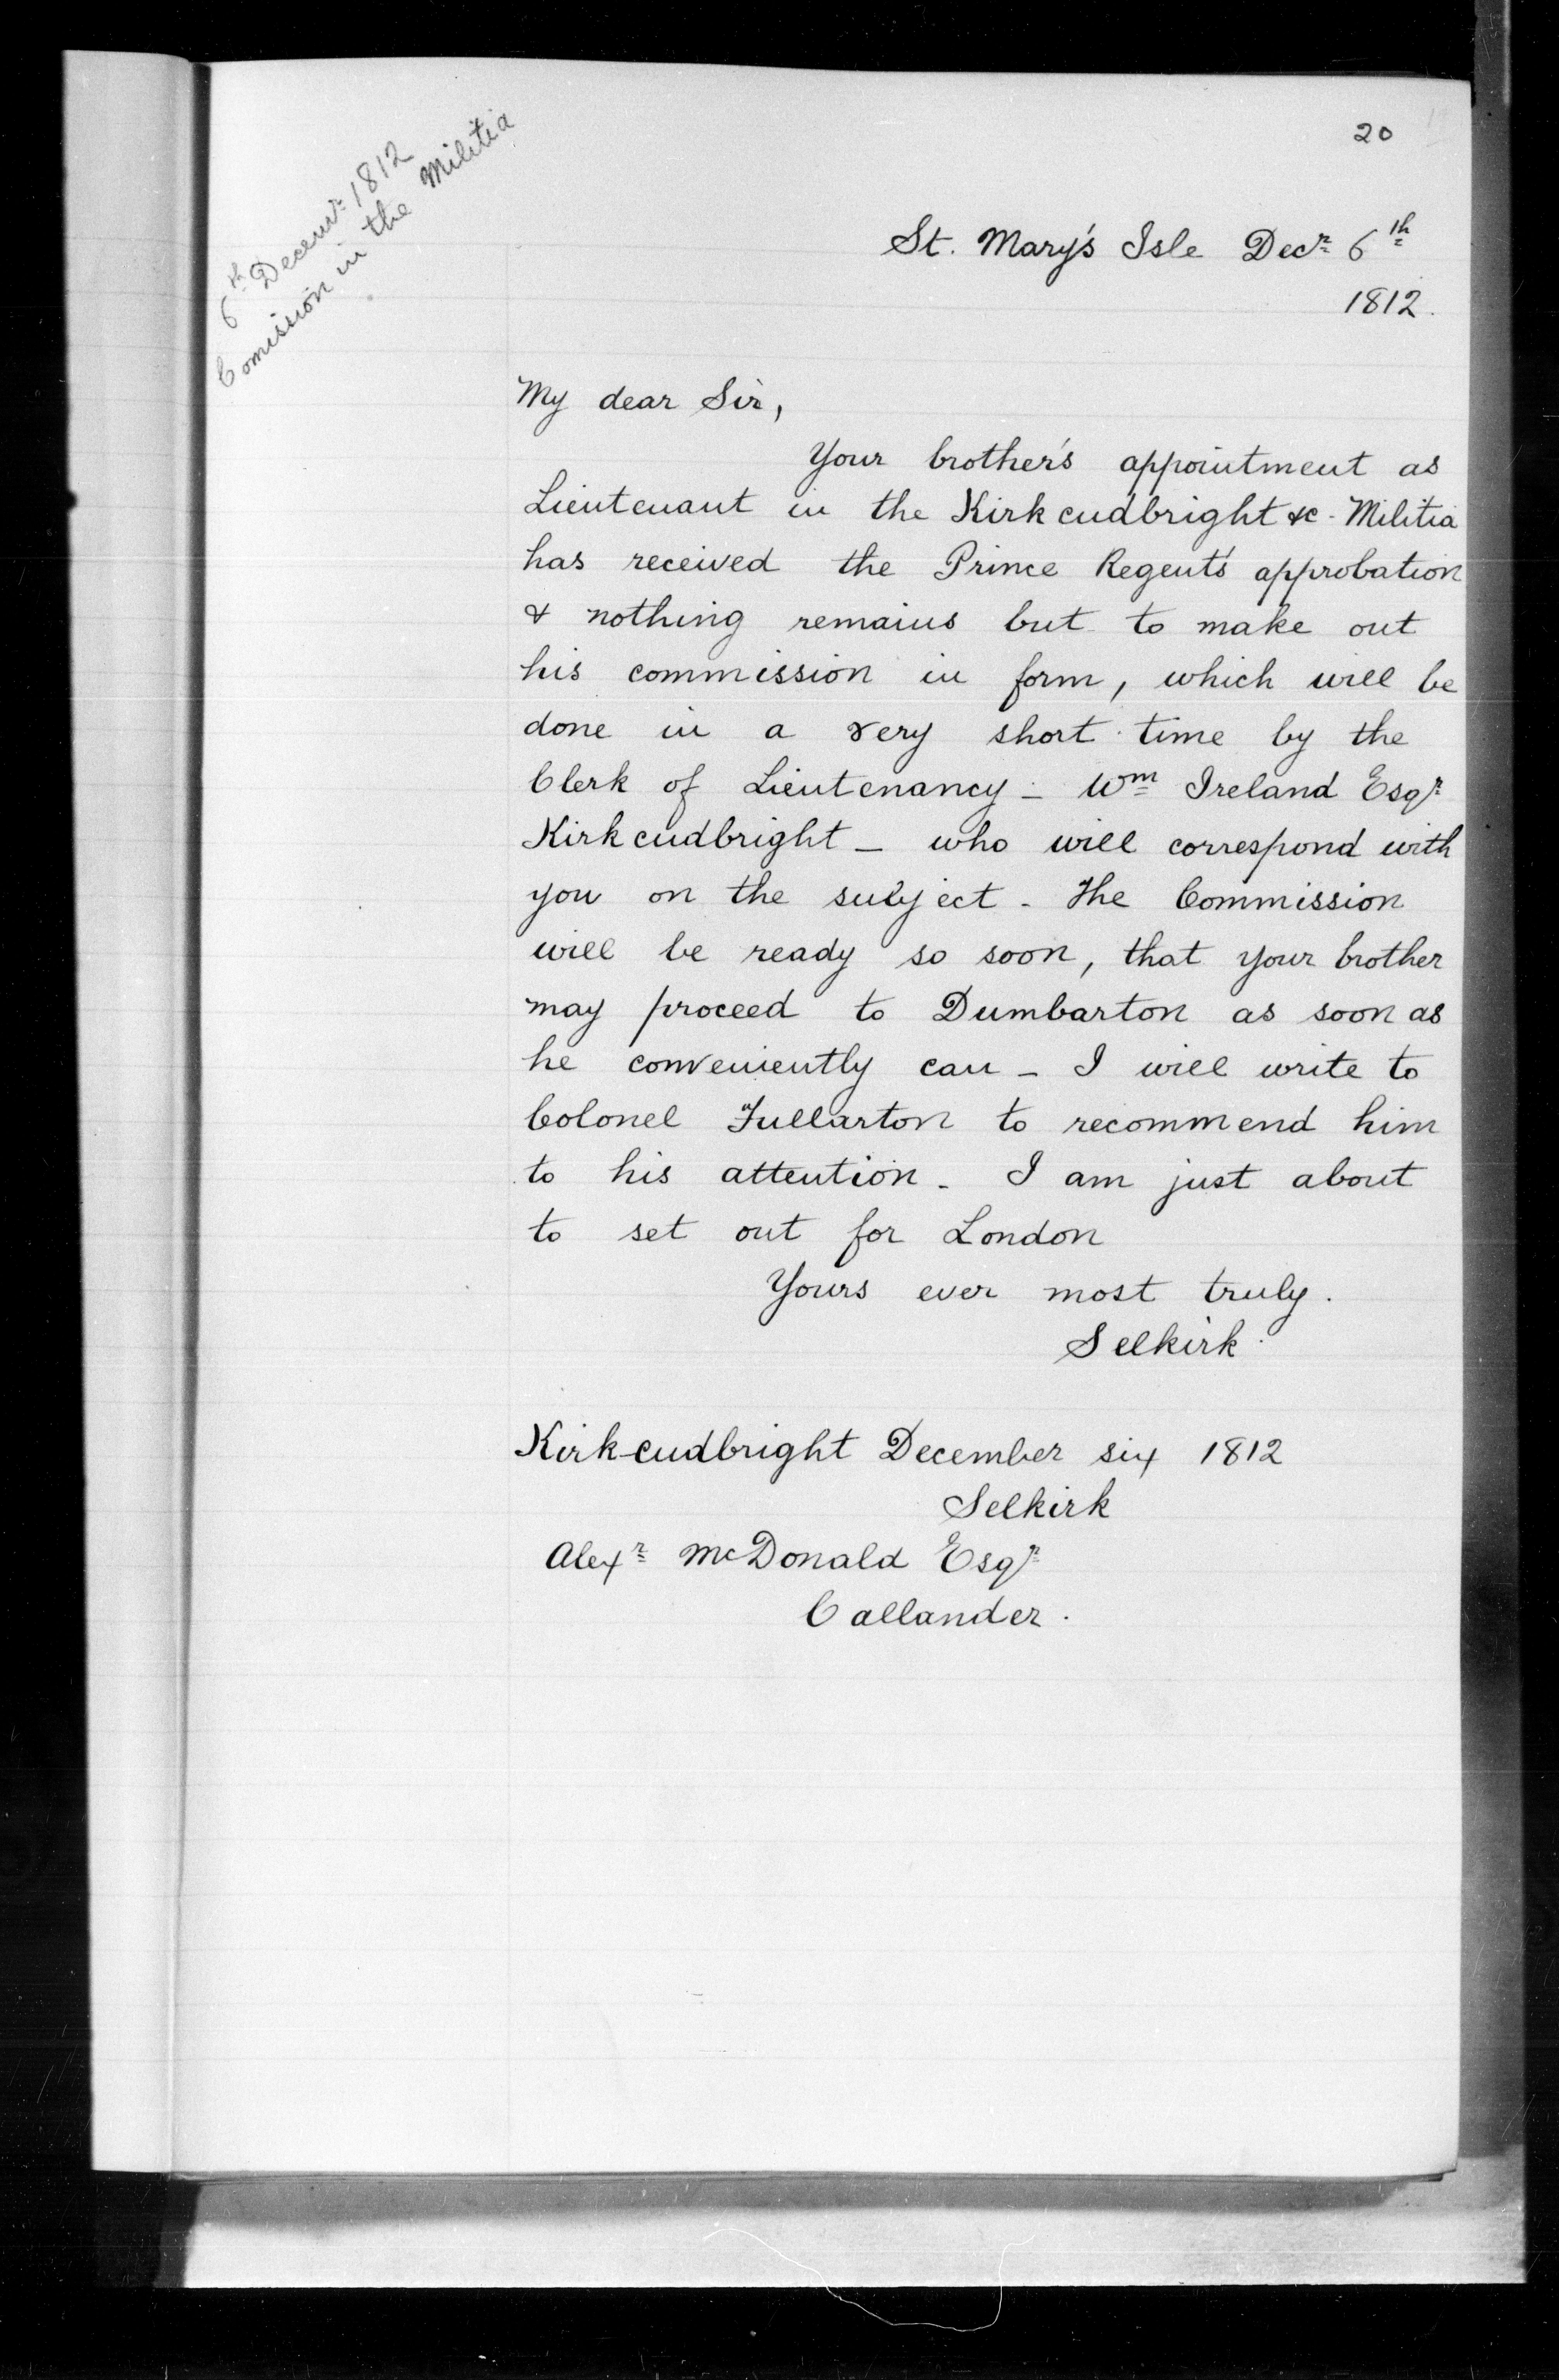 20
6th Decemr 1812
Comission in the Militia
St. Mary's Isle Decr 6th
1812.
My dear Sir,
Your brother's appointment as
Lieutenant in the Kirkcudbright &c. Militia
has received the Prince Regent's approbation
& nothing remains but to make out
his commission in form, which will be
done in a very short time by the
Clerk of Lieutenancy - Wm Ireland Esqr
Kirkcudbright - who will correspond with
you on the subject - The Commission
will be ready so soon, that your brother
may proceed to Dumbarton as soon as
he conveniently can - I will write to
Colonel Fullarton to recommend him
to his attention - I am just about
to set out for London
Yours ever most truly.
Selkirk.
Kirkcudbright December six 1812
Selkirk
Alexr McDonald Esqr
Callander.